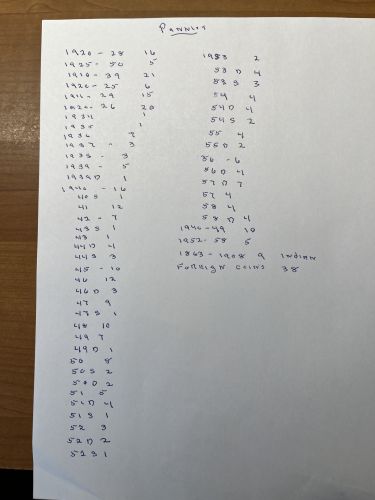 Pennies
1920 - 28 16
1925 - 50 5
1910 - 39 21
1920 - 25 6
1911 - 29 15
1920 - 26 20
1934 1
1935 1
1936 3
1937 - 3
1938 - 3
1939 - 5
1939D 1
1940 - 16
40 S 1
41 12
42 - 7
43 S 1
43 1
44 D 4
44 S 3
45 - 10
46 12
46 D 3
47 9
47 S 1
48 10
49 7
49 D 1
50 8
50 S 2
50 D 2
51 5
51 D 4
51 S 1
52 3
52 D 2
52 S 1
1953 2
53 D 4
53 S 3
54 4
54 D 4
54 S 2
55 4
55 D 2
56 - 6
56 D 4
57 D 7
57 4
58 4
58 D 4
1940 - 49 10
1952 - 58 5
1863 - 1908 9 Indian
Foreign coins 38